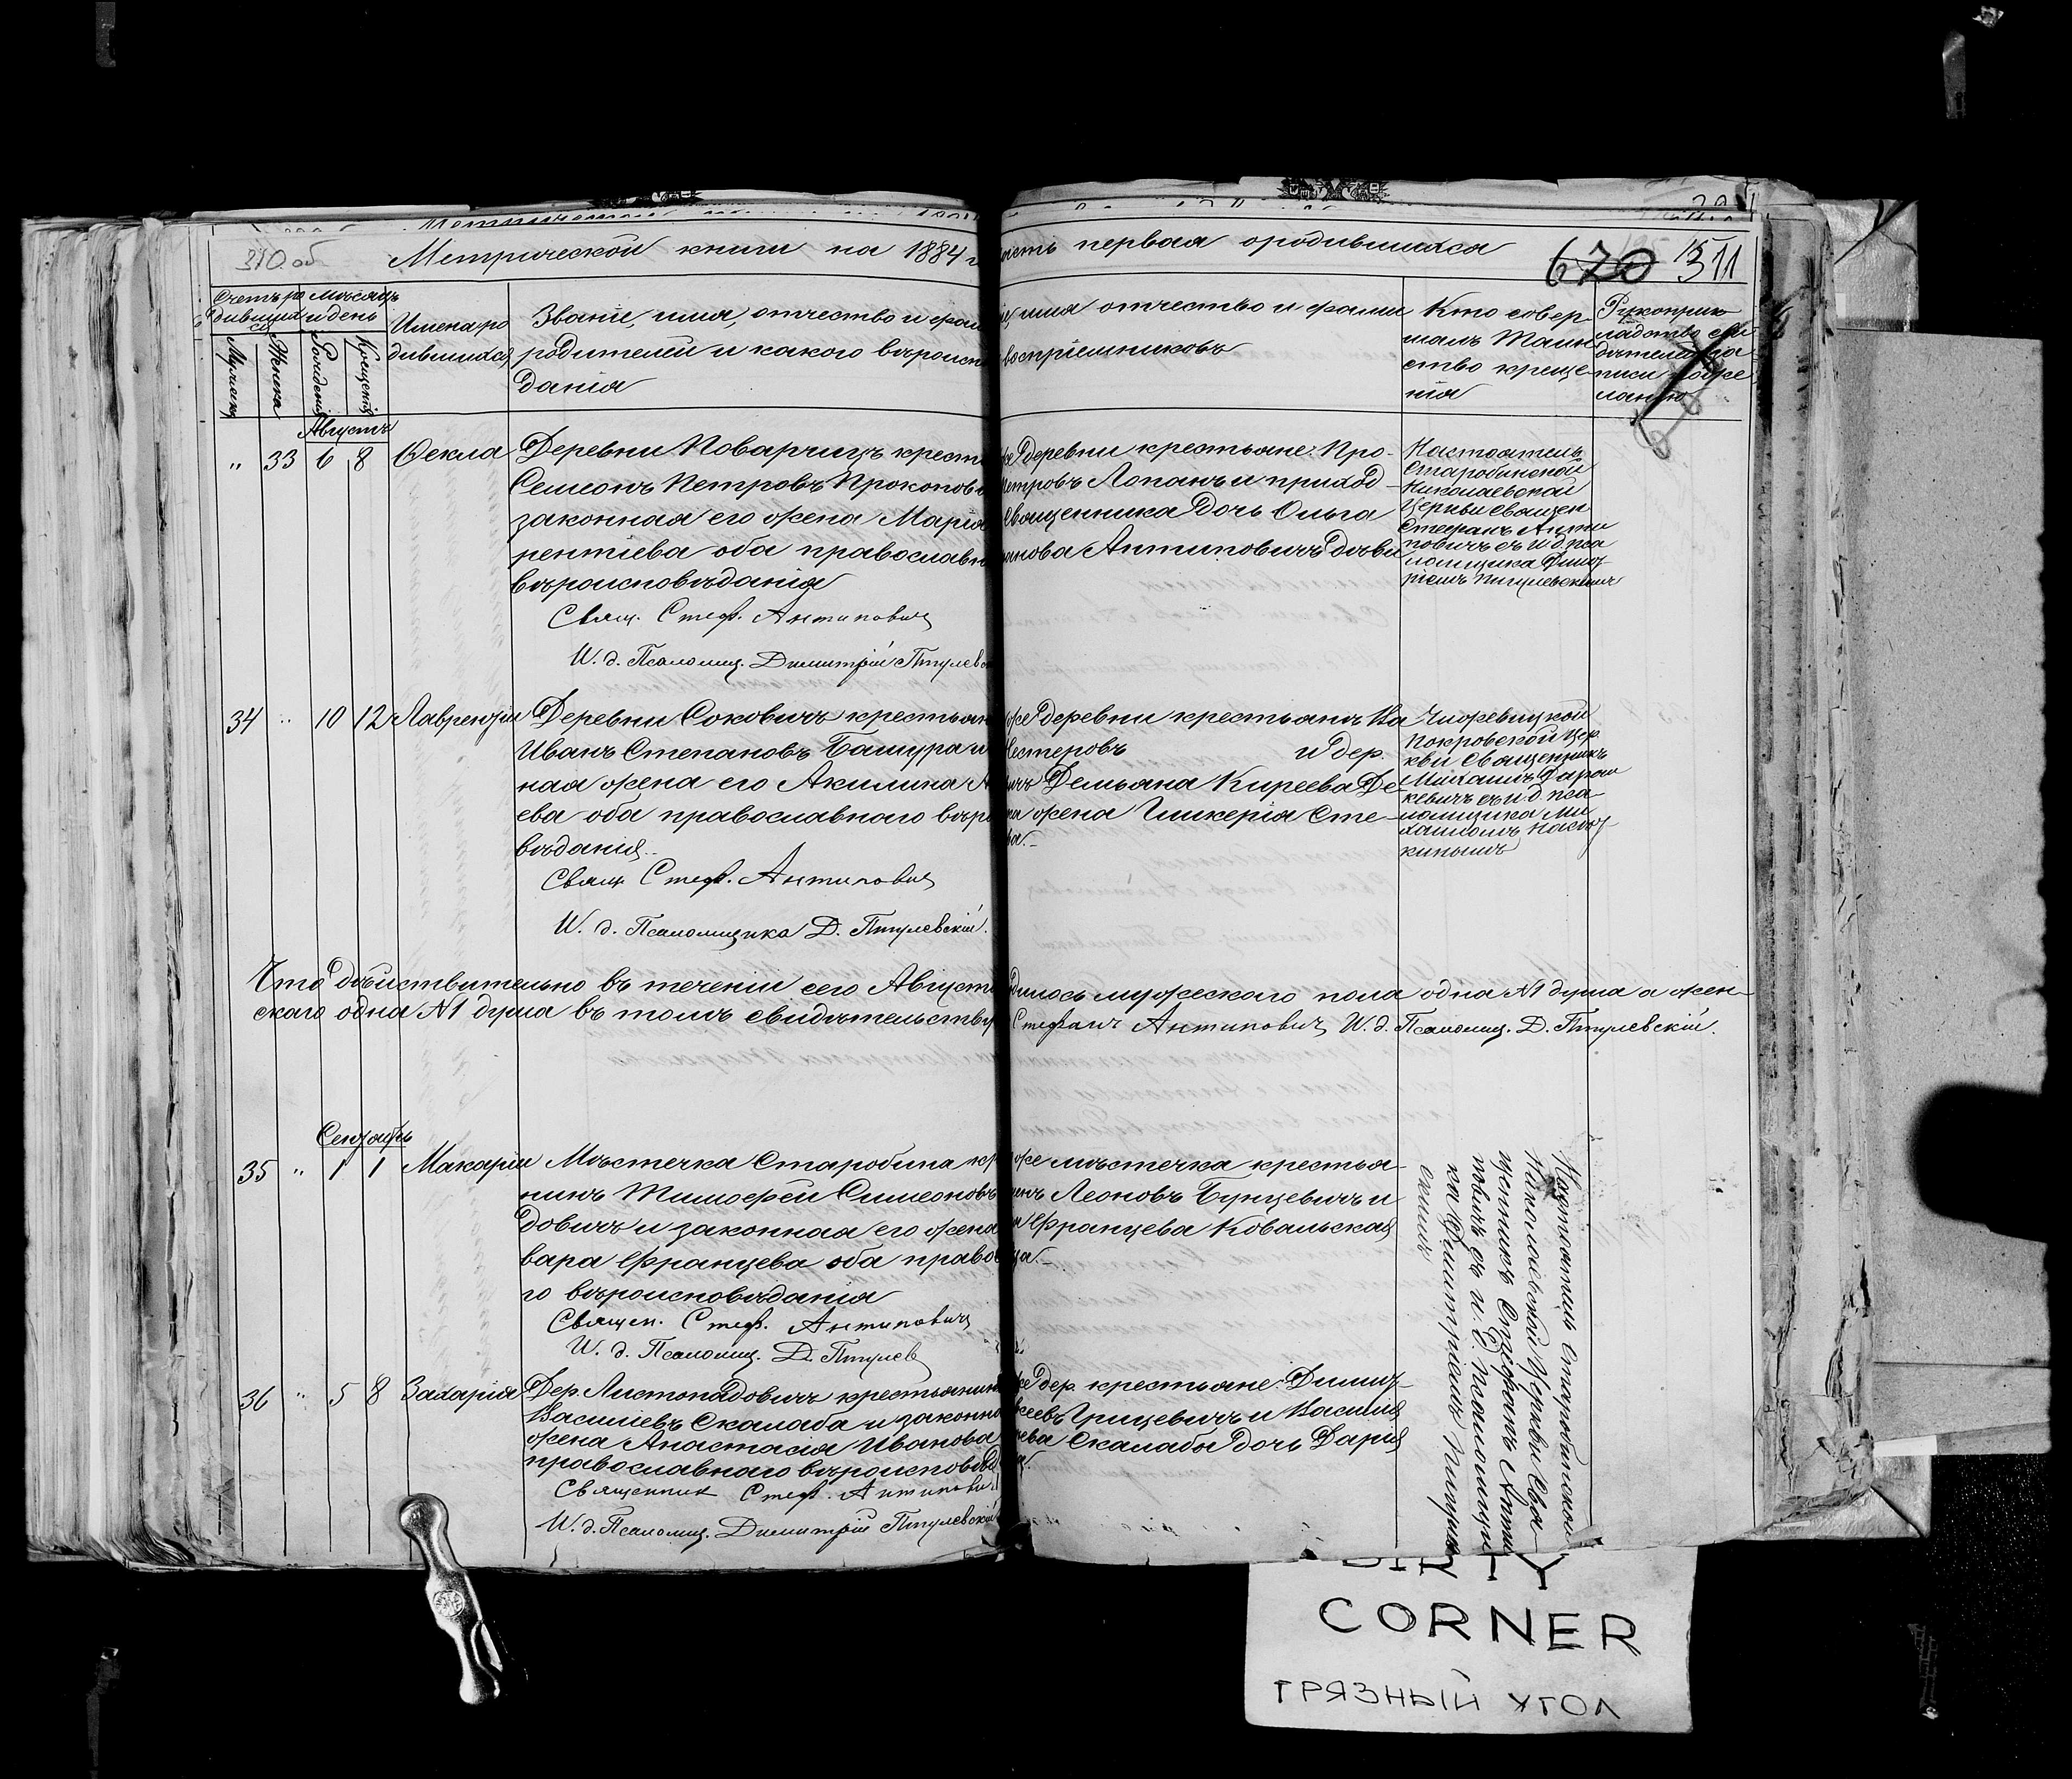 310 об
Метрической книги на 1884 г
асть первая о родившихся
670 311
Счетъ ро
дившихся
Мужеска
Женска
Мѣсяцъ
и день
Рожденія
Крещенія
Имена ро
дившихся
Званіе, имя, отчество и фам
родителей и какого вѣроиспо
данія
имя отчество и фамил
воспріемниковъ
Кто совер
шалъ таин
ство креще
нія
Рукоприк
ладство сви
дѣтелей за
писи по же
ланію
Августъ
" 33 6 8 Ѳекла
Деревни Поварчицъ крест
Семеонъ Петровъ Прокопов
законная его жена Марія
рентіева оба православн
вѣроисповѣданія
Свящ. Стеф. Антипович
И. д. Псаломщ. Димитрій Пигулевс
же деревни крестьяне: Про-
Петровъ Лопанъ и приход
Священника дочь Ольга
анова Антиповичъ дѣви
Настоятель
Старобинской
Николаевской
Церкви Священ
Стефанъ Анти
повичъ съ и.д. пса
ломщика Димит
ріемъ Пигулевскимъ
34 " 10 12 Лаврентій
Деревни Соковичъ крестьян
Иванъ Степановъ Башура и
ная жена его Акилина А
ева оба православнаго вѣро
вѣданія
Свящ. Стеф. Антипович
И. д. Псаломщика Д. Пигулевскій.
же деревни крестьянъ Ва
Нестеровъ и дер.
ичъ Демьяна Киреева Де-
на жена Гликерія Сте-
ва.
Чижевицкой
Покровской Цер
кви Священникъ
Михаилъ
кевичъ съ и.д. пса
ломщика Ми
хаиломъ
Что дѣйствительно въ теченіи сего Август
дилось мужескаго пола одна №1 душа а жен-
скаго одна №1 душа въ томъ свидѣтельству
Стефанъ Антипович И. д. Псаломщ. Д. Пигулевскій.
Сентябрь
35 " 1 1 Макарій
Мѣстечка Старобина кр
нинъ Тимофей Симеоновъ
довичъ и законная его жена
вара Францева оба правос
го вѣроисповѣданія
Священ. Стеф. Антипович
И. д. Псаломщ. Д. Пигулев
же мѣстечка крестья-
Леоновъ Бунцевичъ и
а Францева Ковальская
ца.
Настоятель Старобинской
Николаевской Церкви Свя-
щенникъ Стефанъ Анти
повичъ съ и. д. Псаломщи
ка Димитріемъ Пигулев
скимъ
36 " 5 8 Захарія
Дер. Листопадовичъ крестьянин
Василіевъ Скалаба и законна
жена Анастасія Иванова
православнаго вѣроисповѣд
Священник Стеф. Антипови
И. д. Псаломщ. Димитрій Пигулевскій
же дер. крестьяне: Димит-
ѣевъ Грицевичъ и Василія
ева Скалабы дочь Дарія
DIRTY
CORNER
ГРЯЗНЫЙ УГОЛ